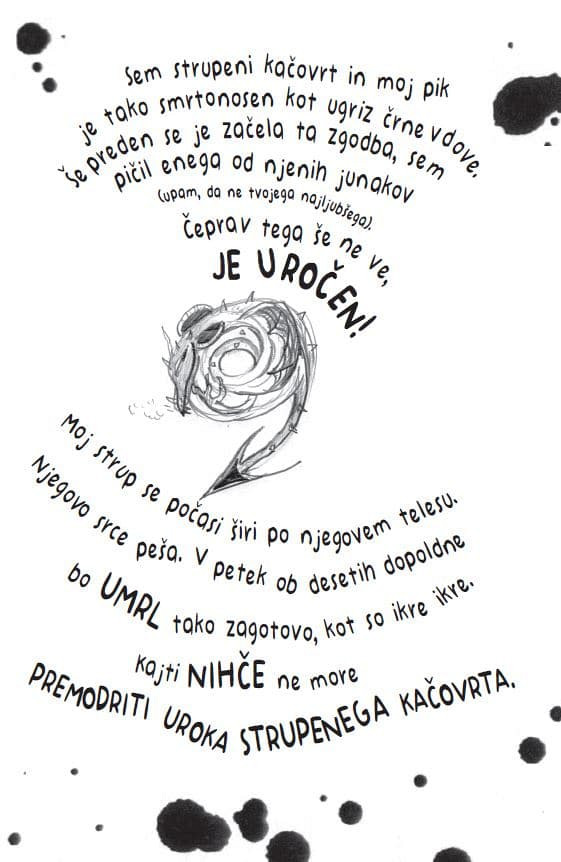 Sem strupeni kačovrt in moj pik
je tako smrtonosen kot ugriz črne vdove.
Še preden se je začela ta zgodba, sem
pičil enega od njenih junakov
(upam, da ne tvojega najljubšega).
Čeprav tega še ne ve,
JE UROČEN!
Moj strup se počasi širi po njegovem telesu.
Njegovo srce peša. V petek ob desetih dopoldne
bo UMRL tako zagotovo, kot so ikre ikre.
Kajti NIHČE ne more
PREMODRITI UROKA STRUPENEGA KAČOVRTA.